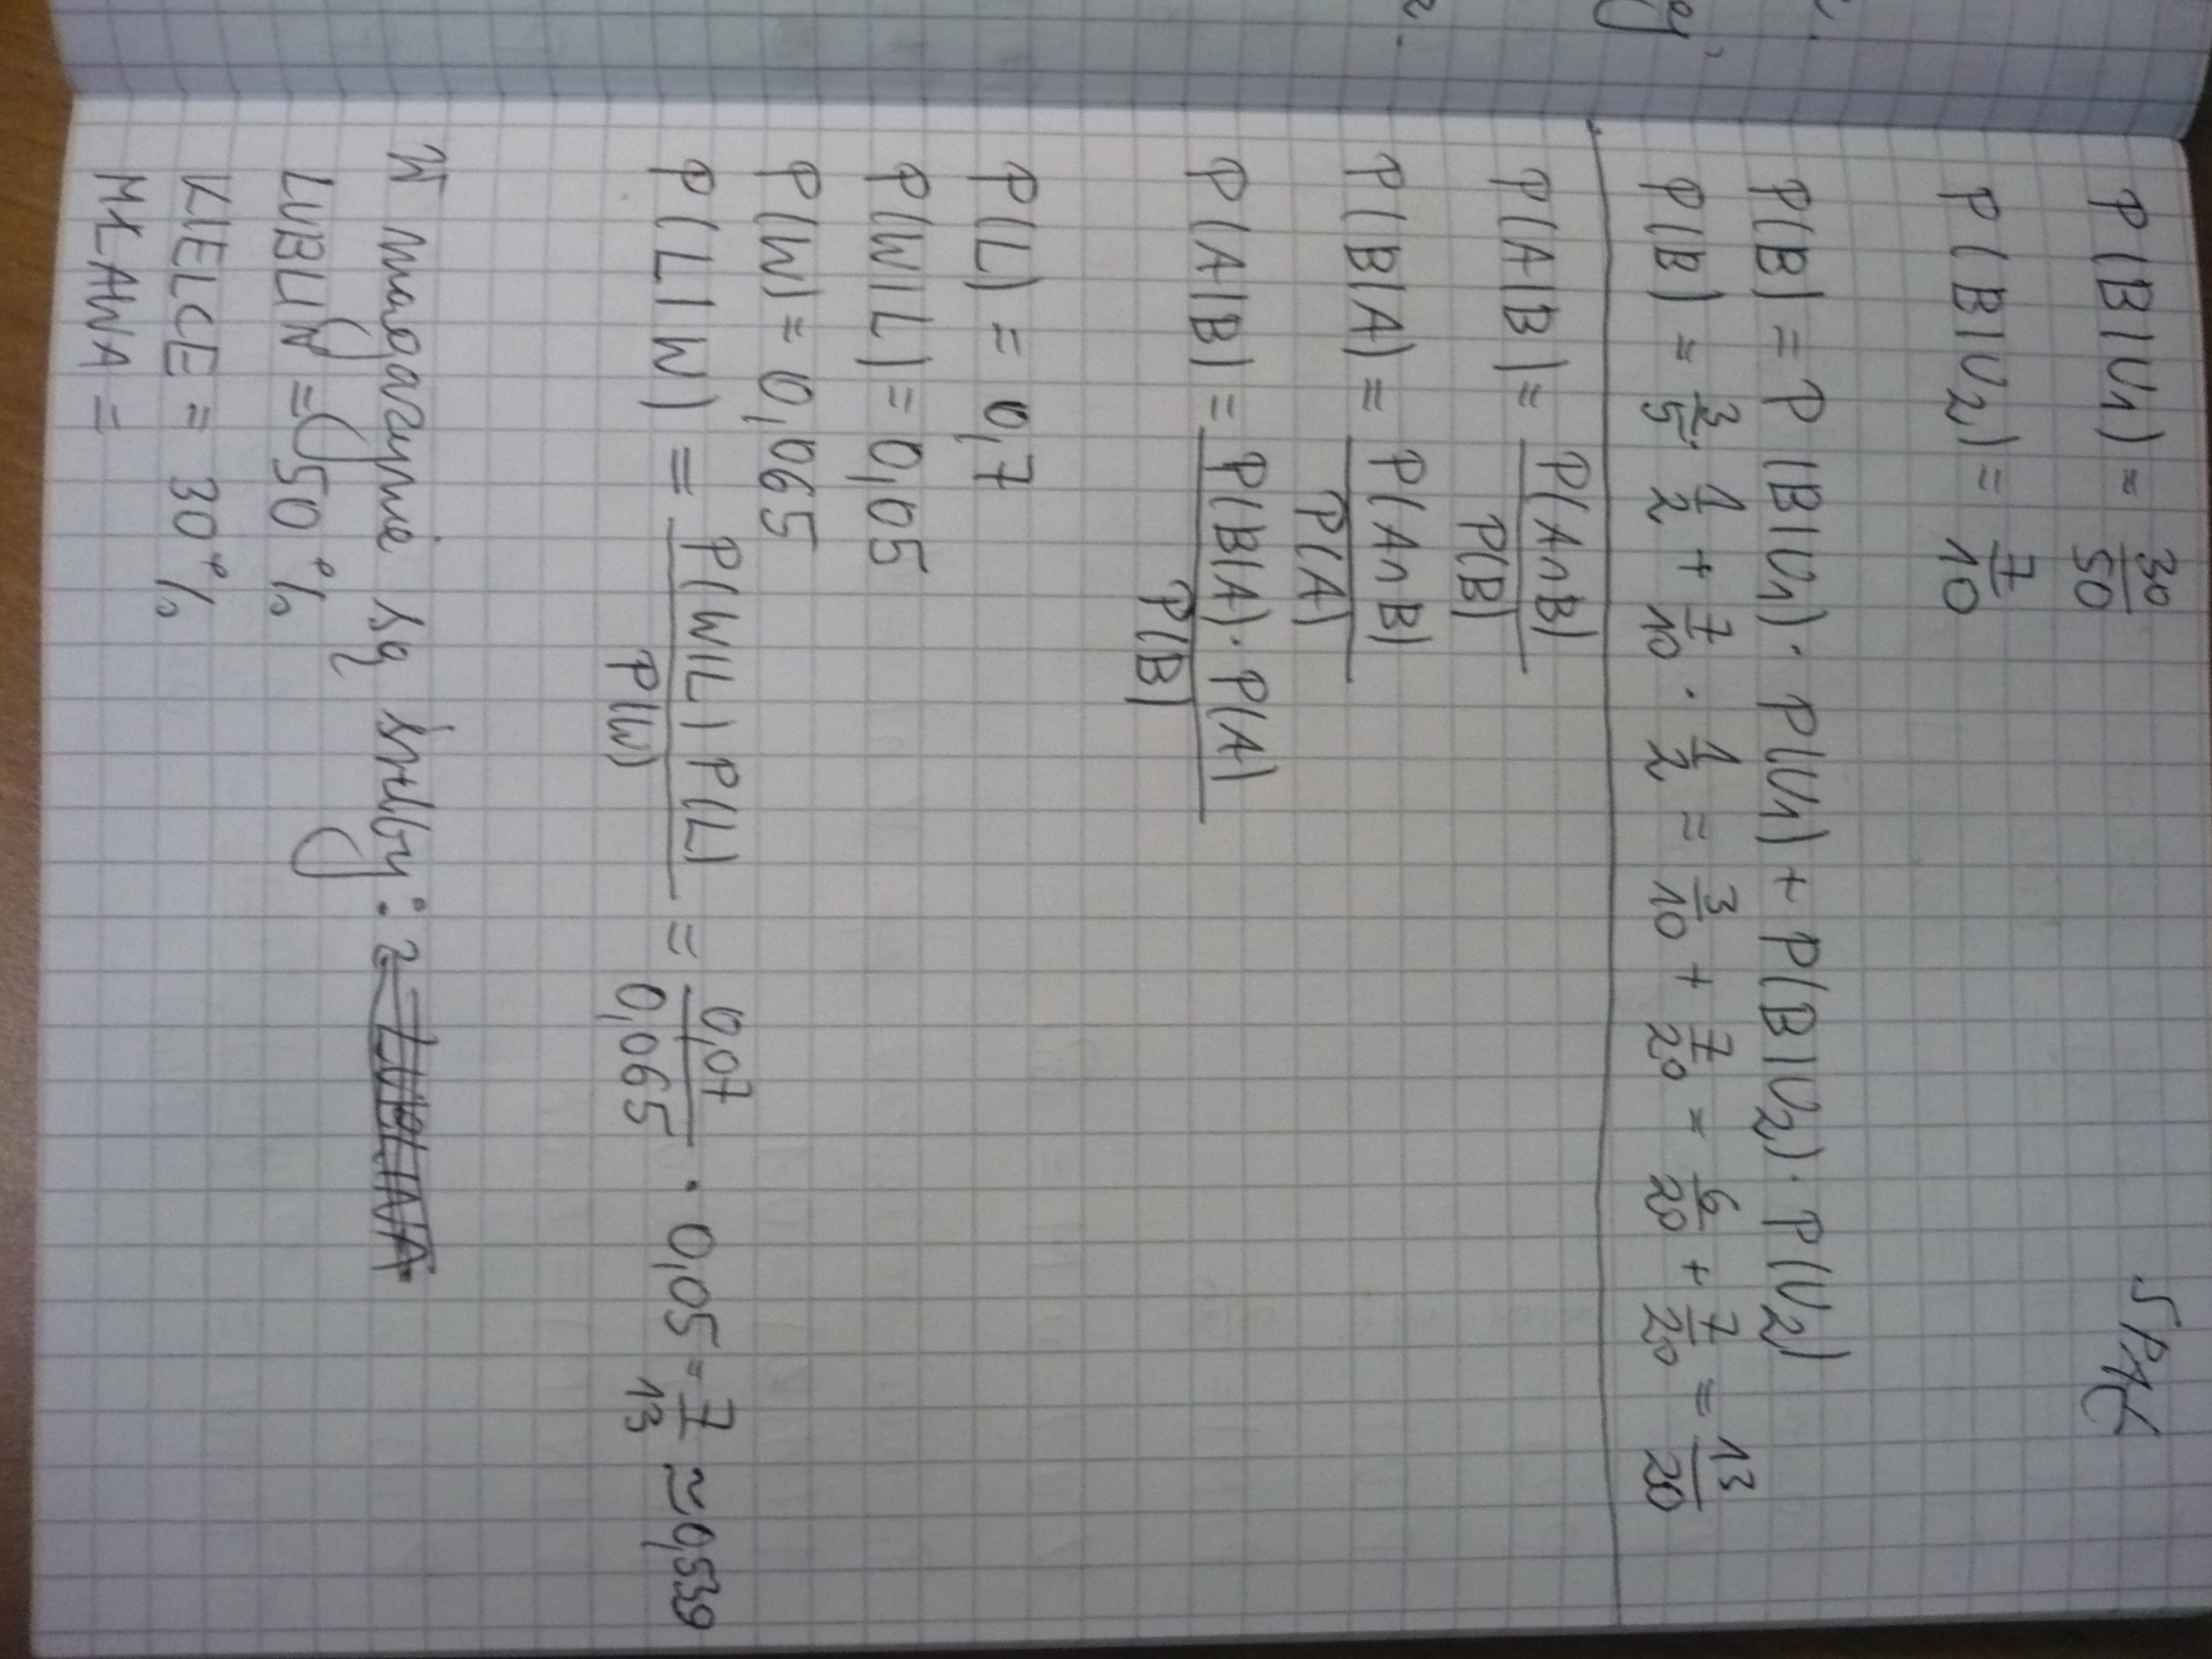 SPAK
P(B|U1) = 30/50
P(B|U2) = 7/10
P(B) = P(B|U1) · P(U1) + P(B|U2) · P(U2)
P(B) = 3/5 · 1/2 + 7/10 · 1/2 = 3/10 + 7/20 = 6/20 + 7/20 = 13/20
P(A|B) = P(A∩B)/P(B)
P(B|A) = P(A∩B)/P(A)
P(A|B) = P(B|A) · P(A)/P(B)
P(L) = 0,7
P(W|L) = 0,05
P(W) = 0,065
P(L|W) = P(W|L) P(L)/P(W) = 0,07/0,065 · 0,05 = 7/13 ≈ 0,539
W magazynie są śruby: z
LUBLIN = 50%
KIELCE = 30%
MŁAWA =